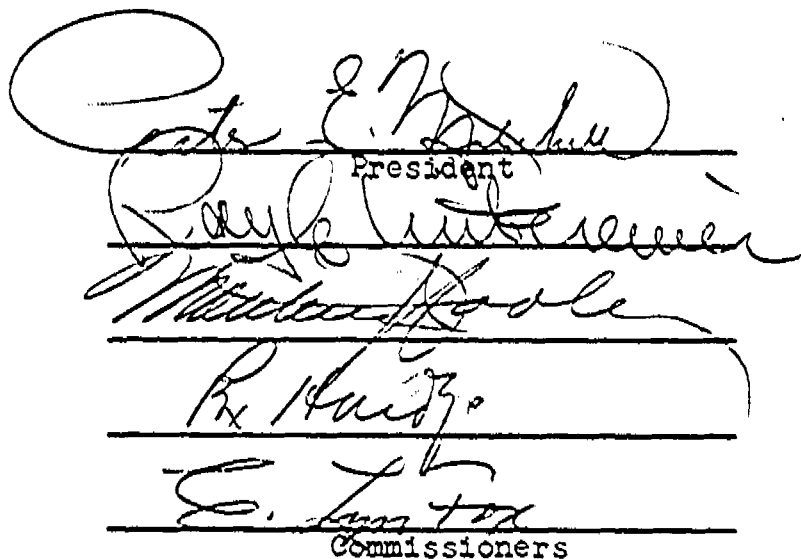 Peter E. Mitchell
President
Ray E. Untereiner
Matthew J. Dooley
Rex Hardy
E. Lyn Fox
Commissioners